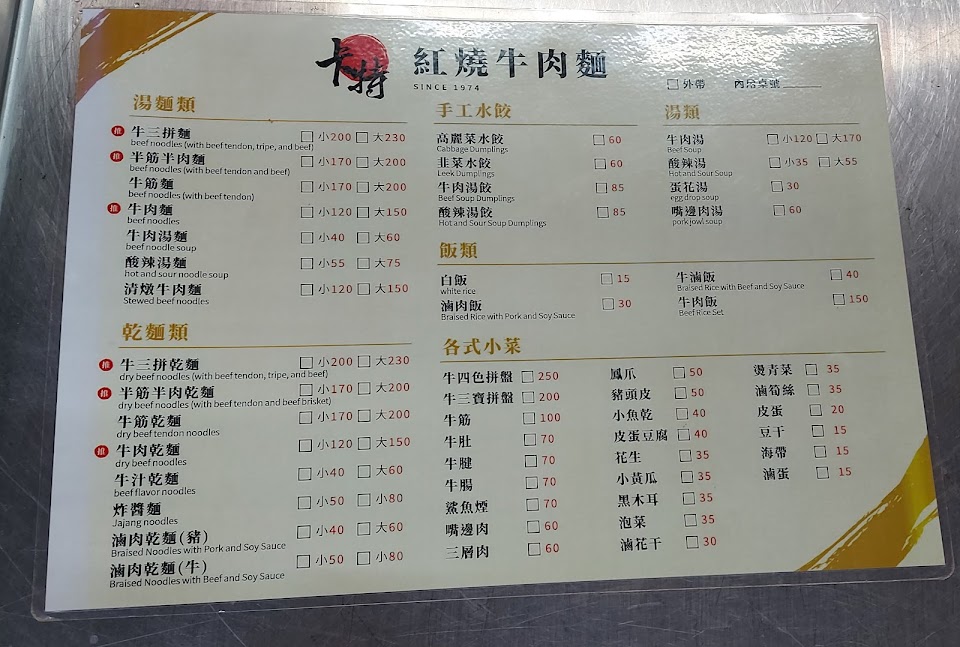 卡特 紅燒牛肉麵
SINCE 1974
☐外帶 內用桌號______
湯麵類
推 牛三拼麵 ☐小200 ☐大230
beef noodles (with beef tendon, tripe, and beef)
推 半筋半肉麵 ☐小170 ☐大200
beef noodles (with beef tendon and beef)
牛筋麵 ☐小170 ☐大200
beef noodles (with beef tendon)
推 牛肉麵 ☐小120 ☐大150
beef noodles
牛肉湯麵 ☐小40 ☐大60
beef noodle soup
酸辣湯麵 ☐小55 ☐大75
hot and sour noodle soup
清燉牛肉麵 ☐小120 ☐大150
Stewed beef noodles
乾麵類
推 牛三拼乾麵 ☐小200 ☐大230
dry beef noodles (with beef tendon, tripe, and beef)
推 半筋半肉乾麵 ☐小170 ☐大200
dry beef noodles (with beef tendon and beef brisket)
牛筋乾麵 ☐小170 ☐大200
dry beef tendon noodles
推 牛肉乾麵 ☐小120 ☐大150
dry beef noodles
牛汁乾麵 ☐小40 ☐大60
beef flavor noodles
炸醬麵 ☐小50 ☐小80
Jajang noodles
滷肉乾麵(豬) ☐小40 ☐大60
Braised Noodles with Pork and Soy Sauce
滷肉乾麵(牛) ☐小50 ☐小80
Braised Noodles with Beef and Soy Sauce
手工水餃
高麗菜水餃 ☐60
Cabbage Dumplings
韭菜水餃 ☐60
Leek Dumplings
牛肉湯餃 ☐85
Beef Soup Dumplings
酸辣湯餃 ☐85
Hot and Sour Soup Dumplings
湯類
牛肉湯 ☐小120 ☐大170
Beef Soup
酸辣湯 ☐小35 ☐大55
Hot and Sour Soup
蛋花湯 ☐30
egg drop soup
嘴邊肉湯 ☐60
pork jowl soup
飯類
白飯 ☐15
white rice
滷肉飯 ☐30
Braised Rice with Pork and Soy Sauce
牛滷飯 ☐40
Braised Rice with Beef and Soy Sauce
牛肉飯 ☐150
Beef Rice Set
各式小菜
牛四色拼盤 ☐250
牛三寶拼盤 ☐200
牛筋 ☐100
牛肚 ☐70
牛腱 ☐70
牛腸 ☐70
鯊魚煙 ☐70
嘴邊肉 ☐60
三層肉 ☐60
鳳爪 ☐50
豬頭皮 ☐50
小魚乾 ☐40
皮蛋豆腐 ☐40
花生 ☐35
小黃瓜 ☐35
黑木耳 ☐35
泡菜 ☐35
滷花干 ☐30
燙青菜 ☐35
滷筍絲 ☐35
皮蛋 ☐20
豆干 ☐15
海帶 ☐15
滷蛋 ☐15